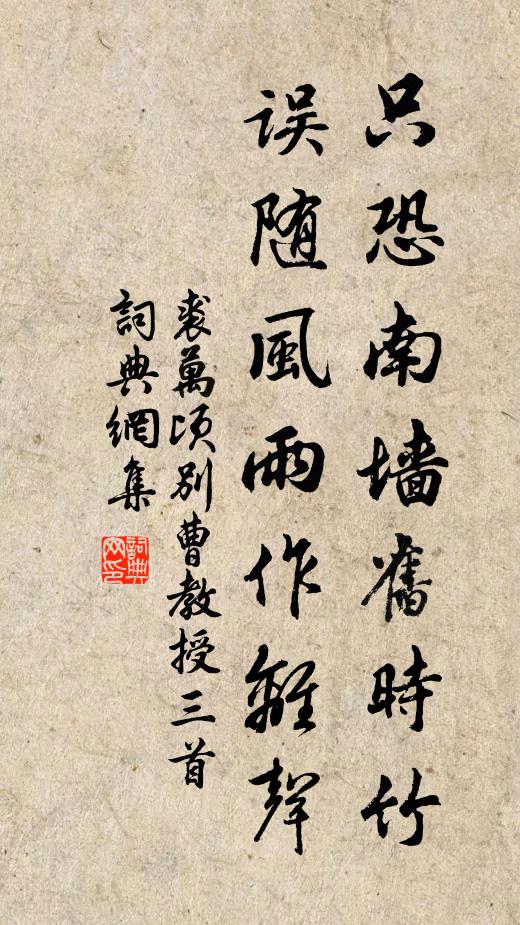 只恐南墙舊時竹
误随風雨作離聲
裘萬頃别曹教授三首
詞典網集
詞典网印